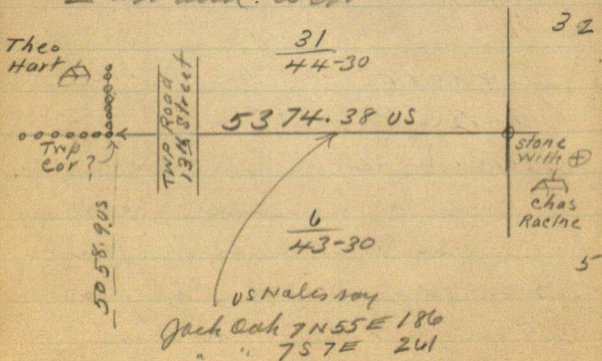 Theo
Hart
31
44-30
32
Twp Road
13th Street
5374.38 US
Twp
Cor?
stone
with ⊕
Chas
Racine
5058.9 US
6
43-30
5
US Notes say
Jack Oak 7 N55E 186
" " 7 S7E 261